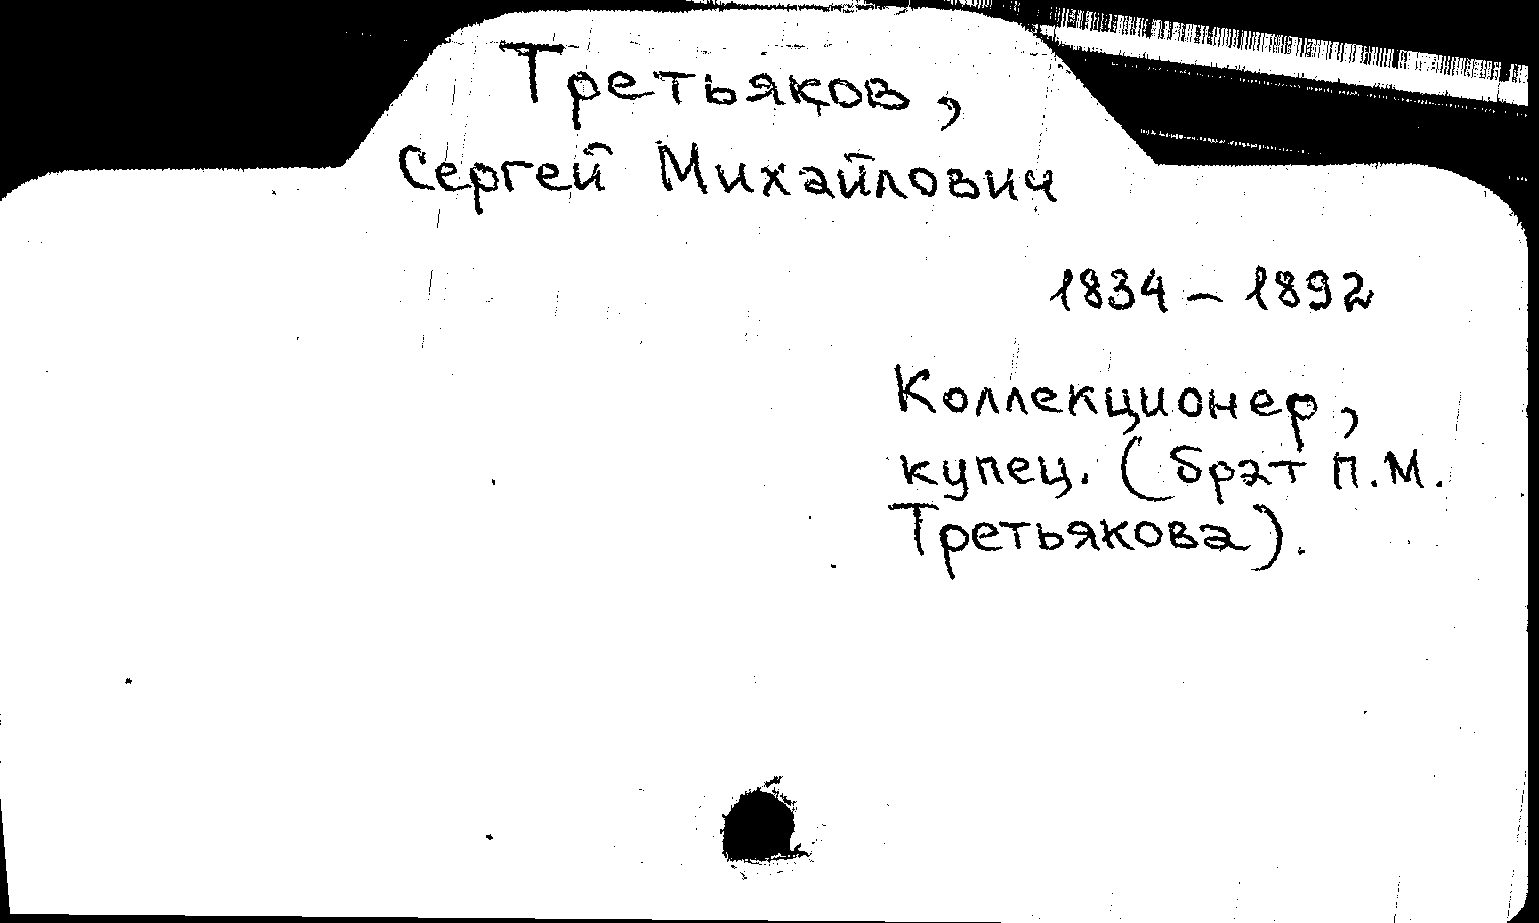 Третьяков,
Сергей Михайлович
1834 – 1892
Коллекционер,
купец. (брат П.М.
Третьякова).